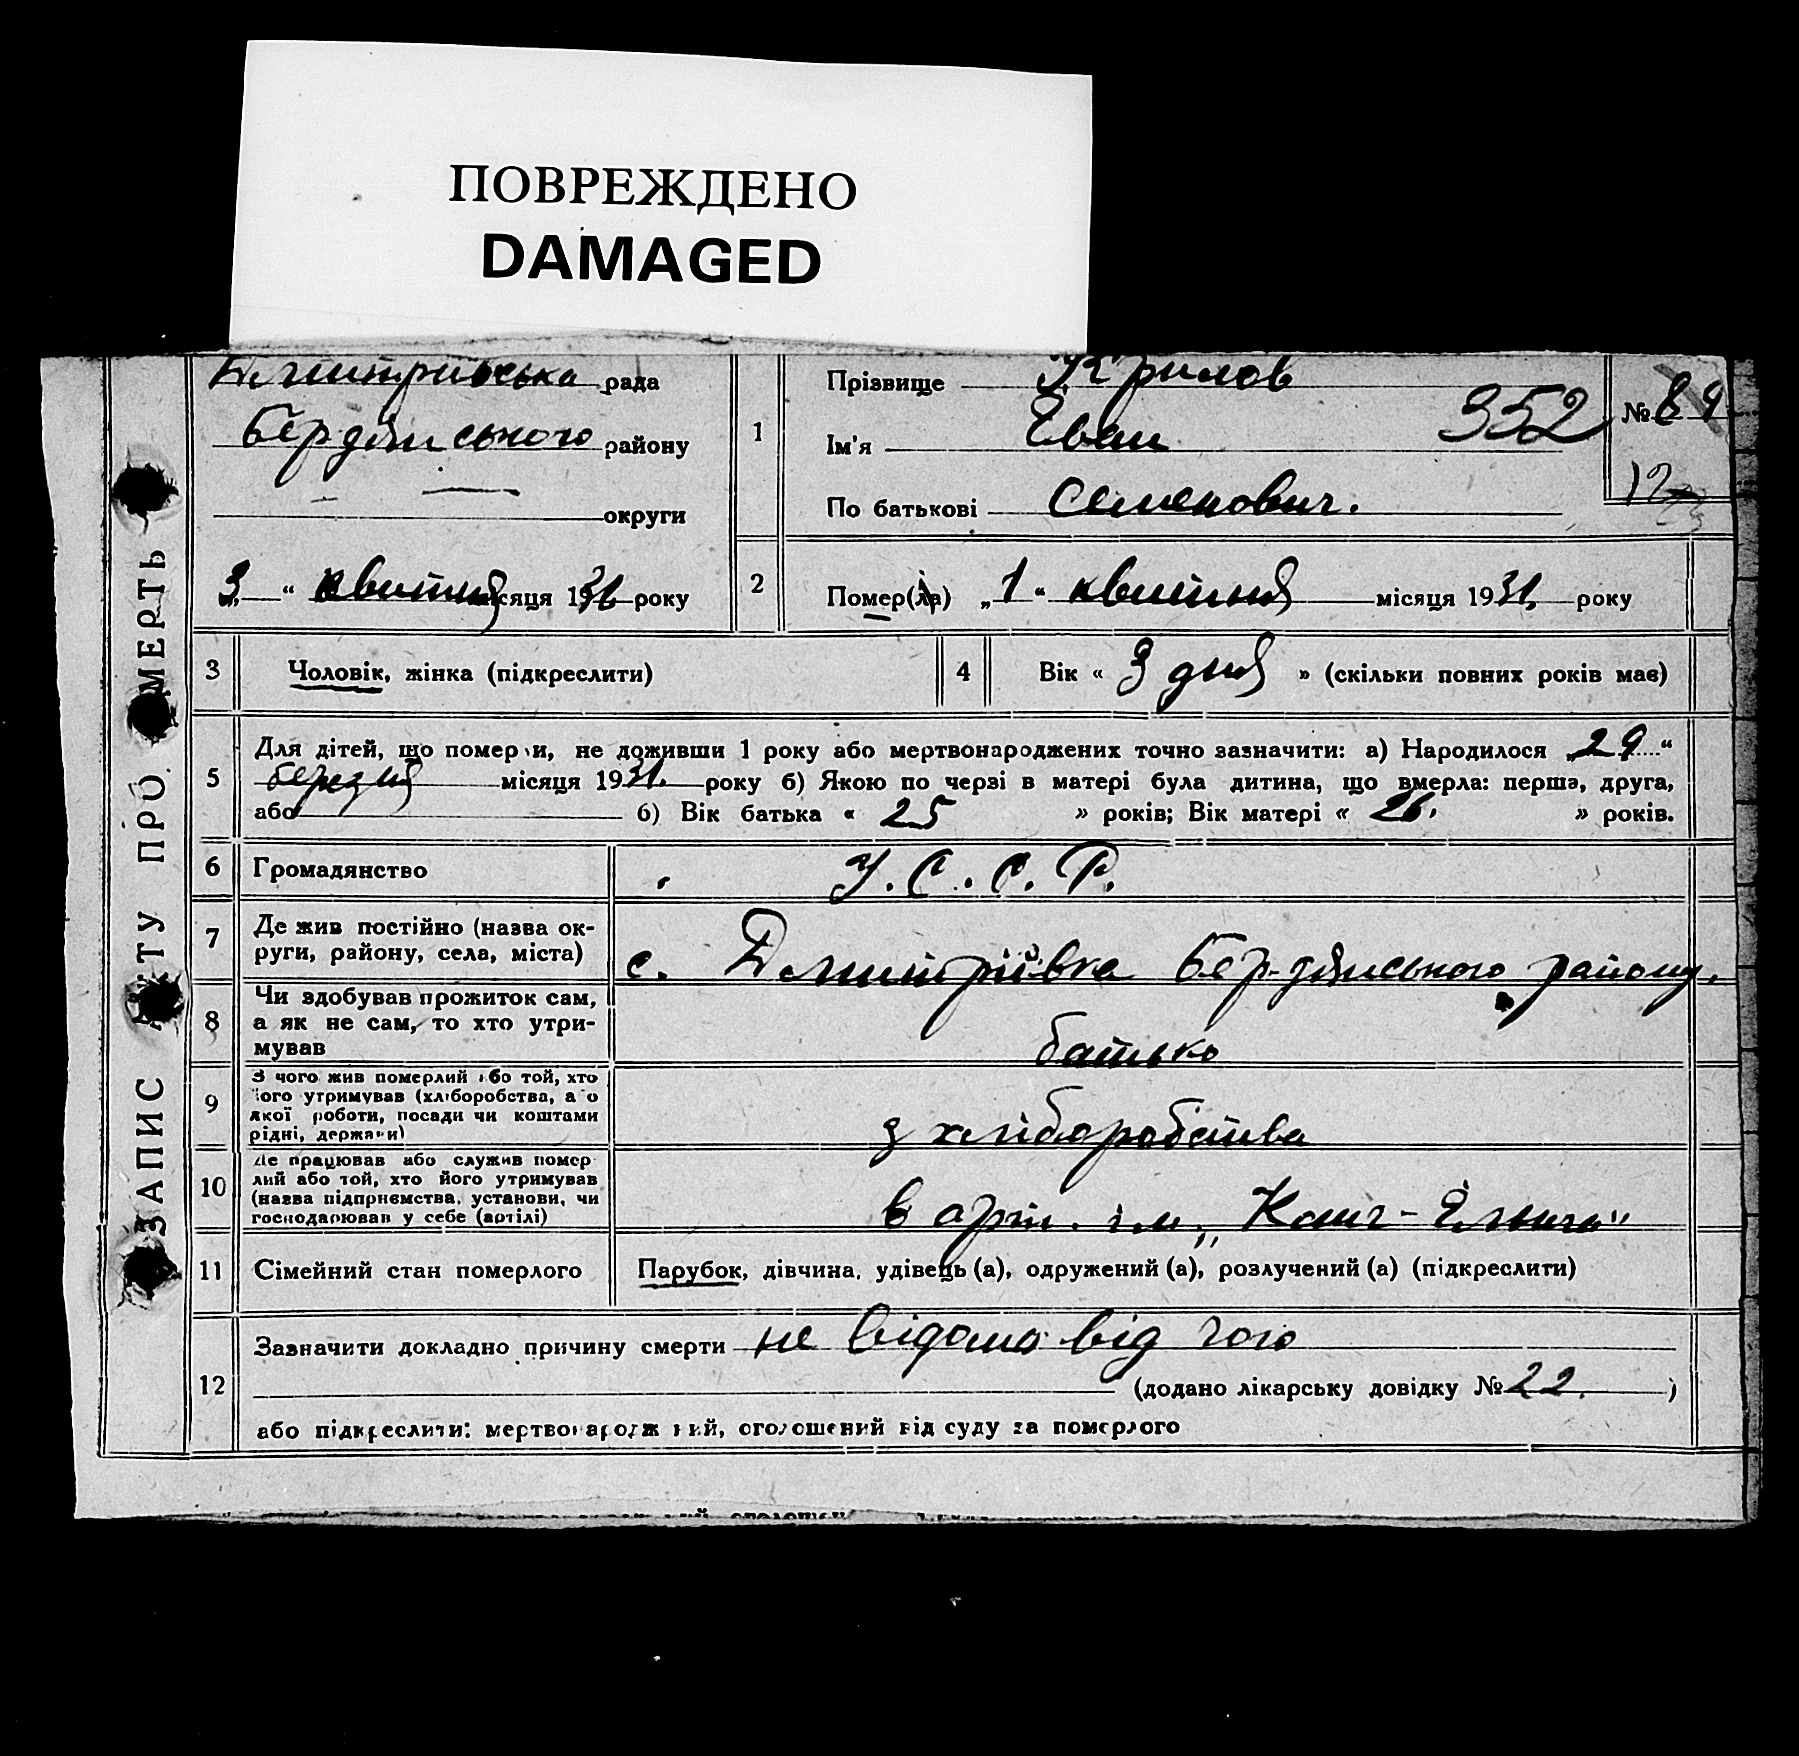 ПОВРЕЖДЕНО
DAMAGED
ЗАПИС АКТУ ПРО СМЕРТЬ
Дмитрівська рада
Бердянського району
округи
„3“ квітня місяця 1931 року
1
Прізвище Крилов
Ім'я Еван
352
По батькові Семенович.
№ 89
12
2
Помер(ла) „1“ квітня місяця 1931. року
3 Чоловік, жінка (підкреслити)
4 Вік « 3 дня » (скільки повних років має)
5
Для дітей, що померли, не доживши 1 року або мертвонароджених точно зазначити: а) Народилося „29“
березня місяця 1931. року б) Якою по черзі в матері була дитина, що вмерла: перша, друга,
або б) Вік батька « 25 » років; Вік матері « 26. » років.
6 Громадянство У.С.С.Р.
7 Де жив постійно (назва ок-
руги, району, села, міста) с. Дмитрівка Бер-дянського району.
8 Чи здобував прожиток сам,
а як не сам, то хто утри-
мував батько
9 З чого жив померлий або той, хто
його утримував (хліборобства, або
якої роботи, посади чи коштами
рідні, держави) з хліборобства
10 Де працював або служив помер
лий або той, хто його утримував
(назва підприємства, установи, чи
господарював у себе (артілі) в арт. ім.
11 Сімейний стан померлого Парубок, дівчина, удівець (а), одружений (а), розлучений (а) (підкреслити)
12 Зазначити докладно причину смерти не відомо від чого
(додано лікарську довідку № 22. )
або підкреслити: мертвонароджений, оголошений від суду за померлого